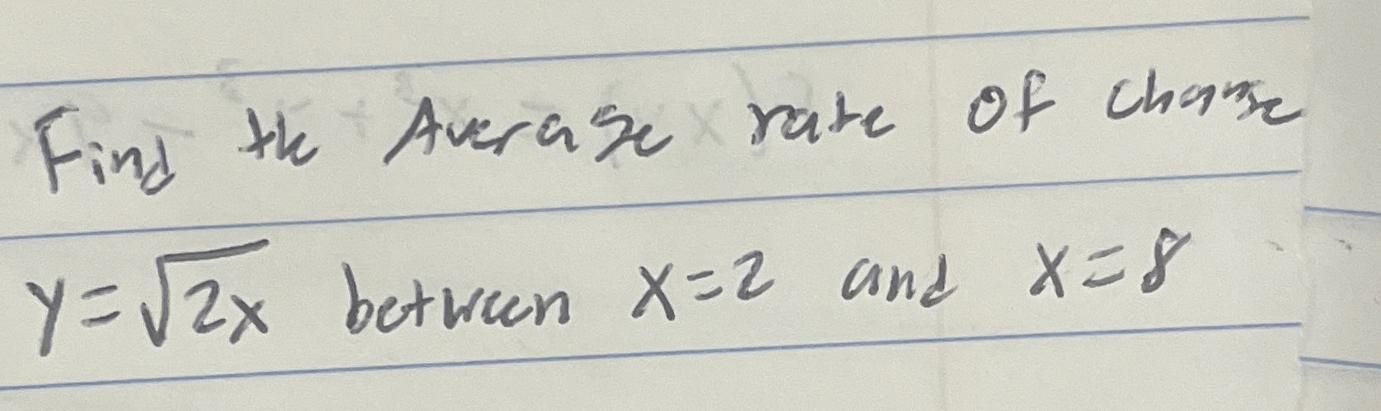 Find the Average rate of change
y=√2x between x=2 and x=8